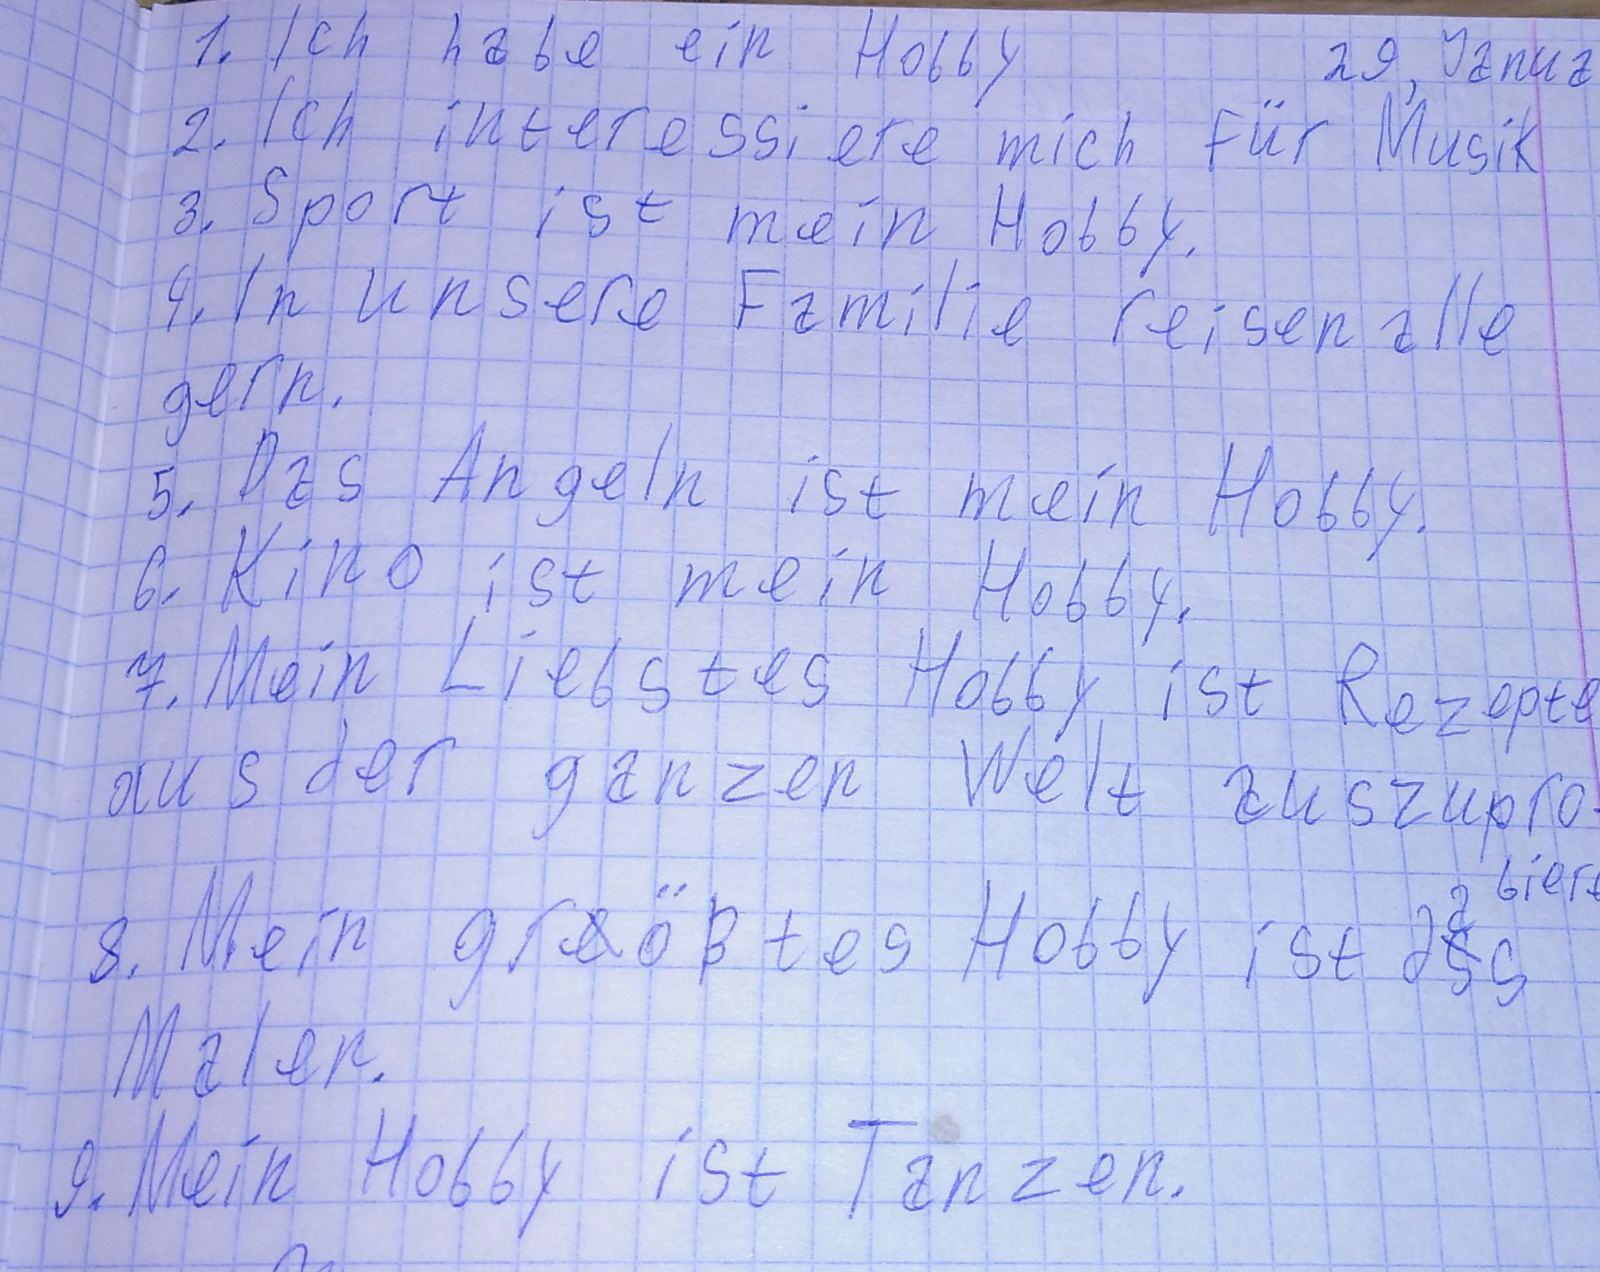 1. Ich habe ein Hobby 29, Janua
2. Ich interessiere mich für Musik
3. Sport ist mein Hobby.
4. In unsere Familie reisen alle
gern.
5. Das Angeln ist mein Hobby.
6. Kino ist mein Hobby.
7. Mein Liebstes Hobby ist Rezepte
aus der ganzen Welt auszupro-
biere
8. Mein größtes Hobby ist das
Malen.
9. Mein Hobby ist Tanzen.